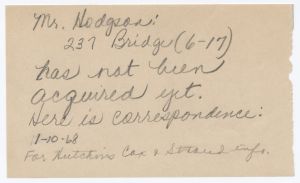 Mr. Hodgson:
237 Bridge (6-17)
has not been
acquired yet.
Here is correspondence:
1-10-68
For Hutchins Cox & Stroud info.